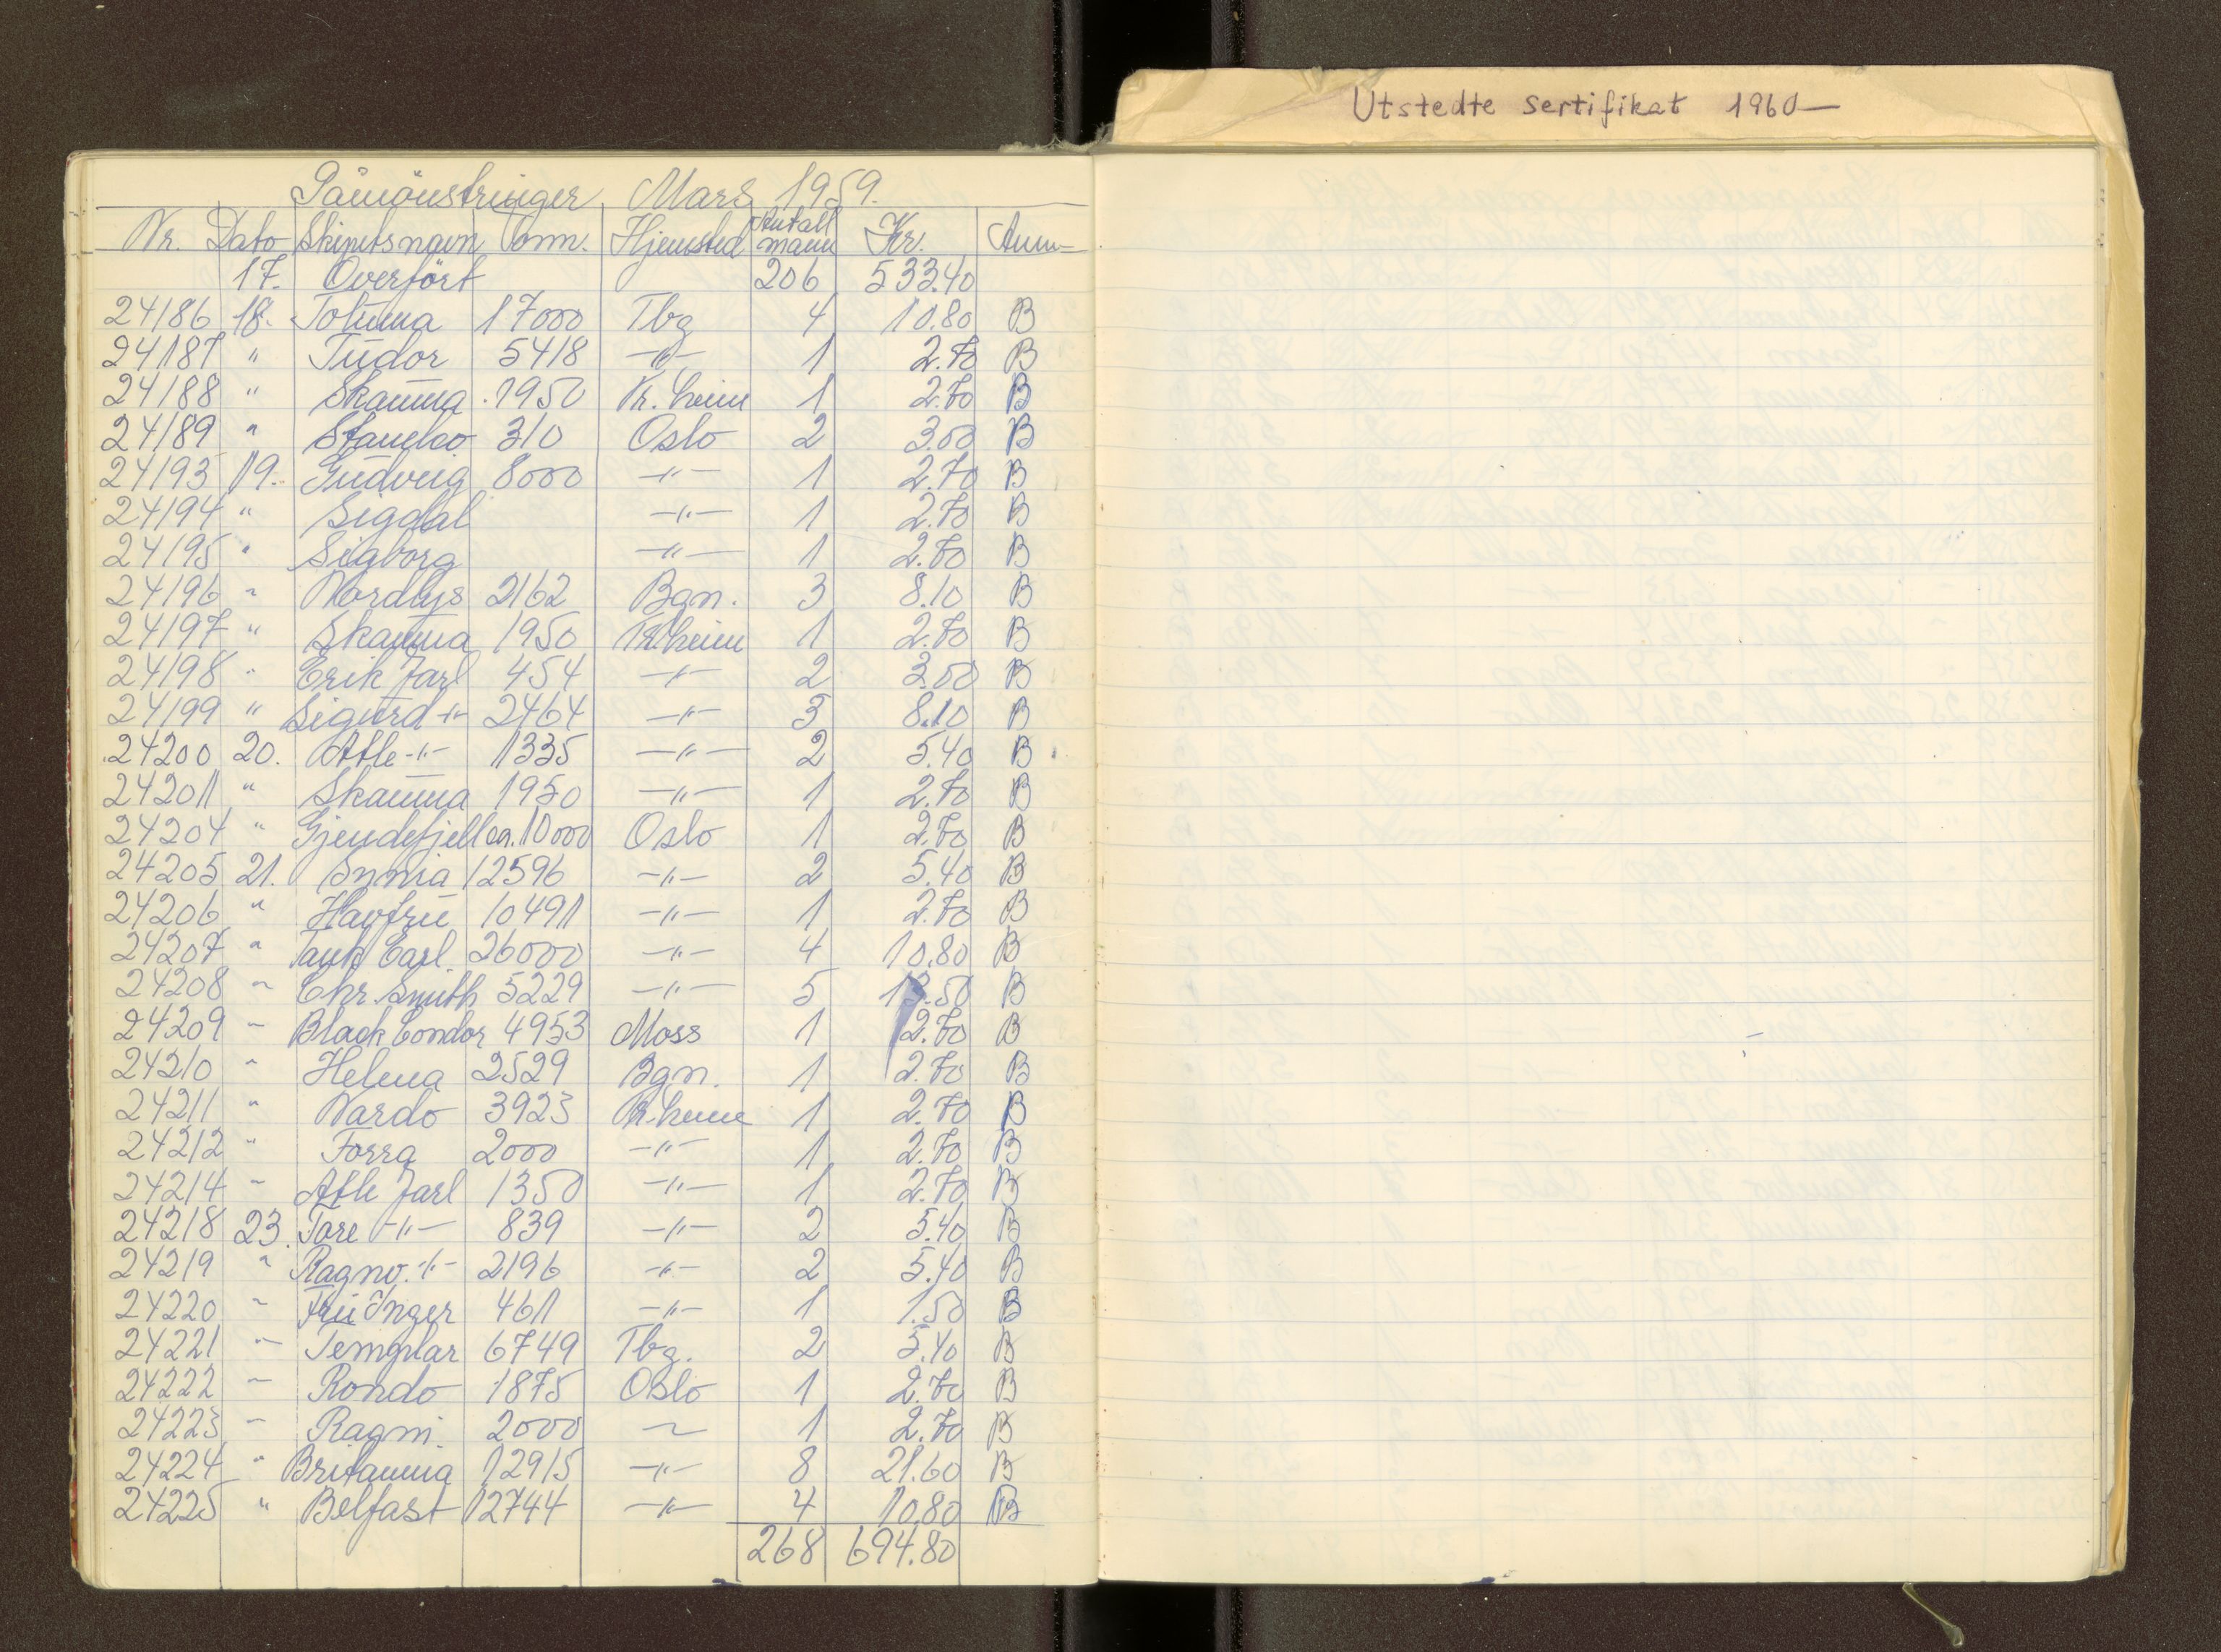 Utstedte sertifikat 1960—
Påmönstringer Mars 1959.
Nr. Dato Skipetsnavn Tonn. Hjemsted Antall mann Kr. Anm-
17. Overfört 206 533.40
24186 18. Toluma 17000 Tbg 4 10.80 B
24187 " Tudor 5418 -"- 1 2.70 B
24188 " Skauma 1950 Tr.heim 1 2.70 B
24189 " 310 Oslo 2 3.00 B
24193 19. Gudveig 8000 -"- 1 2.70 B
24194 " Sigdal -"- 1 2.70 B
24195 " Sigborg -"- 1 2.70 B
24196 " Nordlys 2162 Bgn. 3 8.10 B
24197 " Skauma 1950 Tr.heim 1 2.70 B
24198 " Erik Jarl 454 -"- 2 3.00 B
24199 " Sigurd -"- 2464 -"- 3 8.10 B
24200 20. Atle -"- 1335 -"- 2 5.40 B
24201 " Skauma 1950 -"- 1 2.70 B
24204 " Gjendefjell ca. 10000 Oslo 1 2.70 B
24205 21. 12596 -"- 2 5.40 B
24206 " Havfru 10491 -"- 1 2.70 B
24207 " Tank Carl. 26000 -"- 4 10.80 B
24208 " Chr. Smith 5229 -"- 5 13.50 B
24209 " Black Condor 4953 Moss 1 2.70 B
24210 " Helena 2529 Bgn. 1 2.70 B
24211 " Vardo 3923 Tr.heim 1 2.70 B
24212 " Forra 2000 -"- 1 2.70 B
24214 " Atle Jarl 1350 -"- 1 2.70 B
24218 23. Tore -"- 839 -"- 2 5.40 B
24219 " Ragnv. -"- 2196 -"- 2 5.40 B
24220 " Fru Inger 461 -"- 1 1.50 B
24221 " Templar 6749 Tbg. 2 5.40 B
24222 " Rondo 1875 Oslo 1 2.70 B
24223 " Ragni 2000 " 1 2.70 B
24224 " Britannia 12915 -"- 8 21.60 B
24225 " Belfast 12744 -"- 4 10.80 B
268 694.80